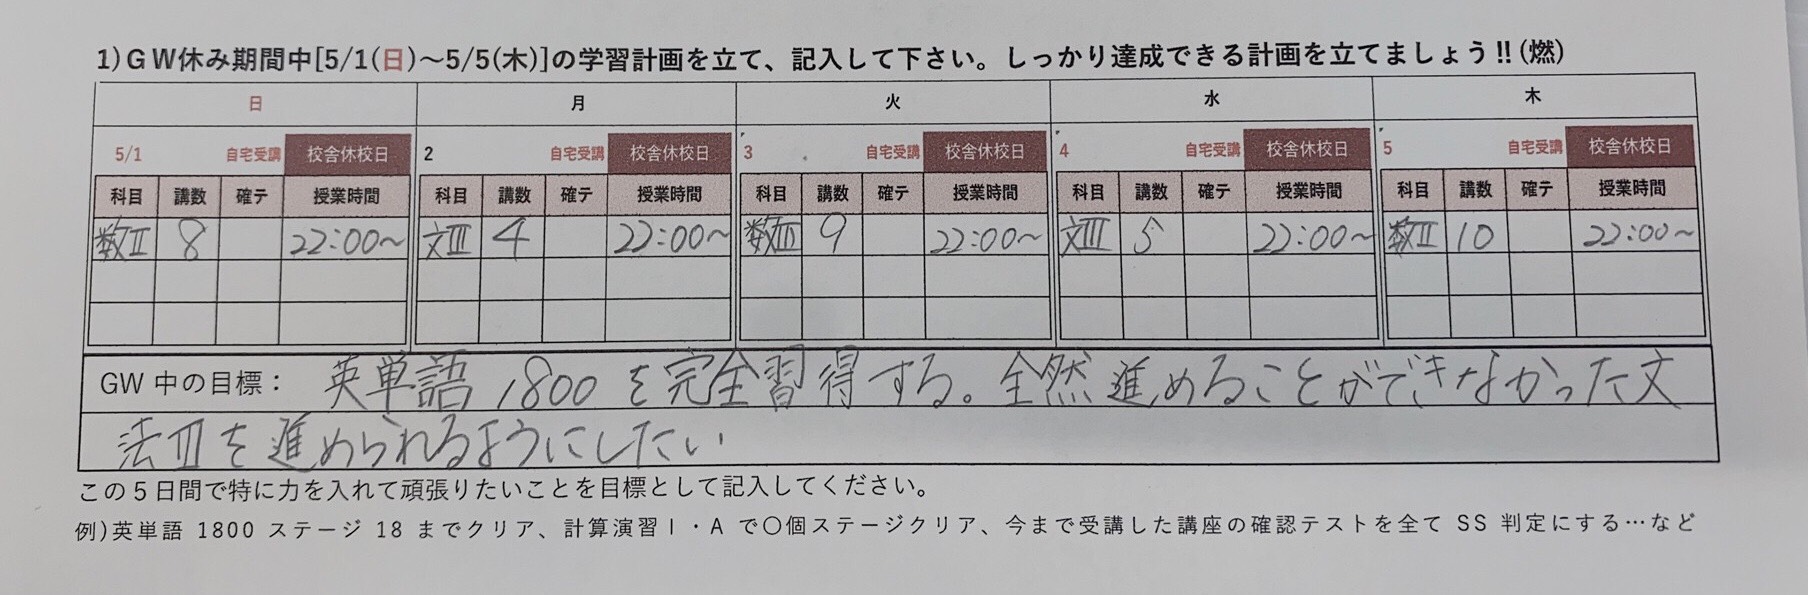 1)GW休み期間中[5/1(日)～5/5(木)]の学習計画を立て、記入して下さい。しっかり達成できる計画を立てましょう!!(燃)
日 月 火 水 木
5/1 自宅受講 校舎休校日 2 自宅受講 校舎休校日 3 自宅受講 校舎休校日 4 自宅受講 校舎休校日 5 自宅受講 校舎休校日
科目 講数 確テ 授業時間 科目 講数 確テ 授業時間 科目 講数 確テ 授業時間 科目 講数 確テ 授業時間 科目 講数 確テ 授業時間
数II 8 22:00～ 文III 4 22:00～ 数III 9 22:00～ 文III 5 22:00～ 数II 10 22:00～
GW 中の目標： 英単語 1800 を完全習得する。全然進めることができなかった文
法IIIを進められるようにしたい
この5日間で特に力を入れて頑張りたいことを目標として記入してください。
例)英単語 1800 ステージ 18 までクリア、計算演習Ⅰ・A で〇個ステージクリア、今まで受講した講座の確認テストを全て SS 判定にする…など